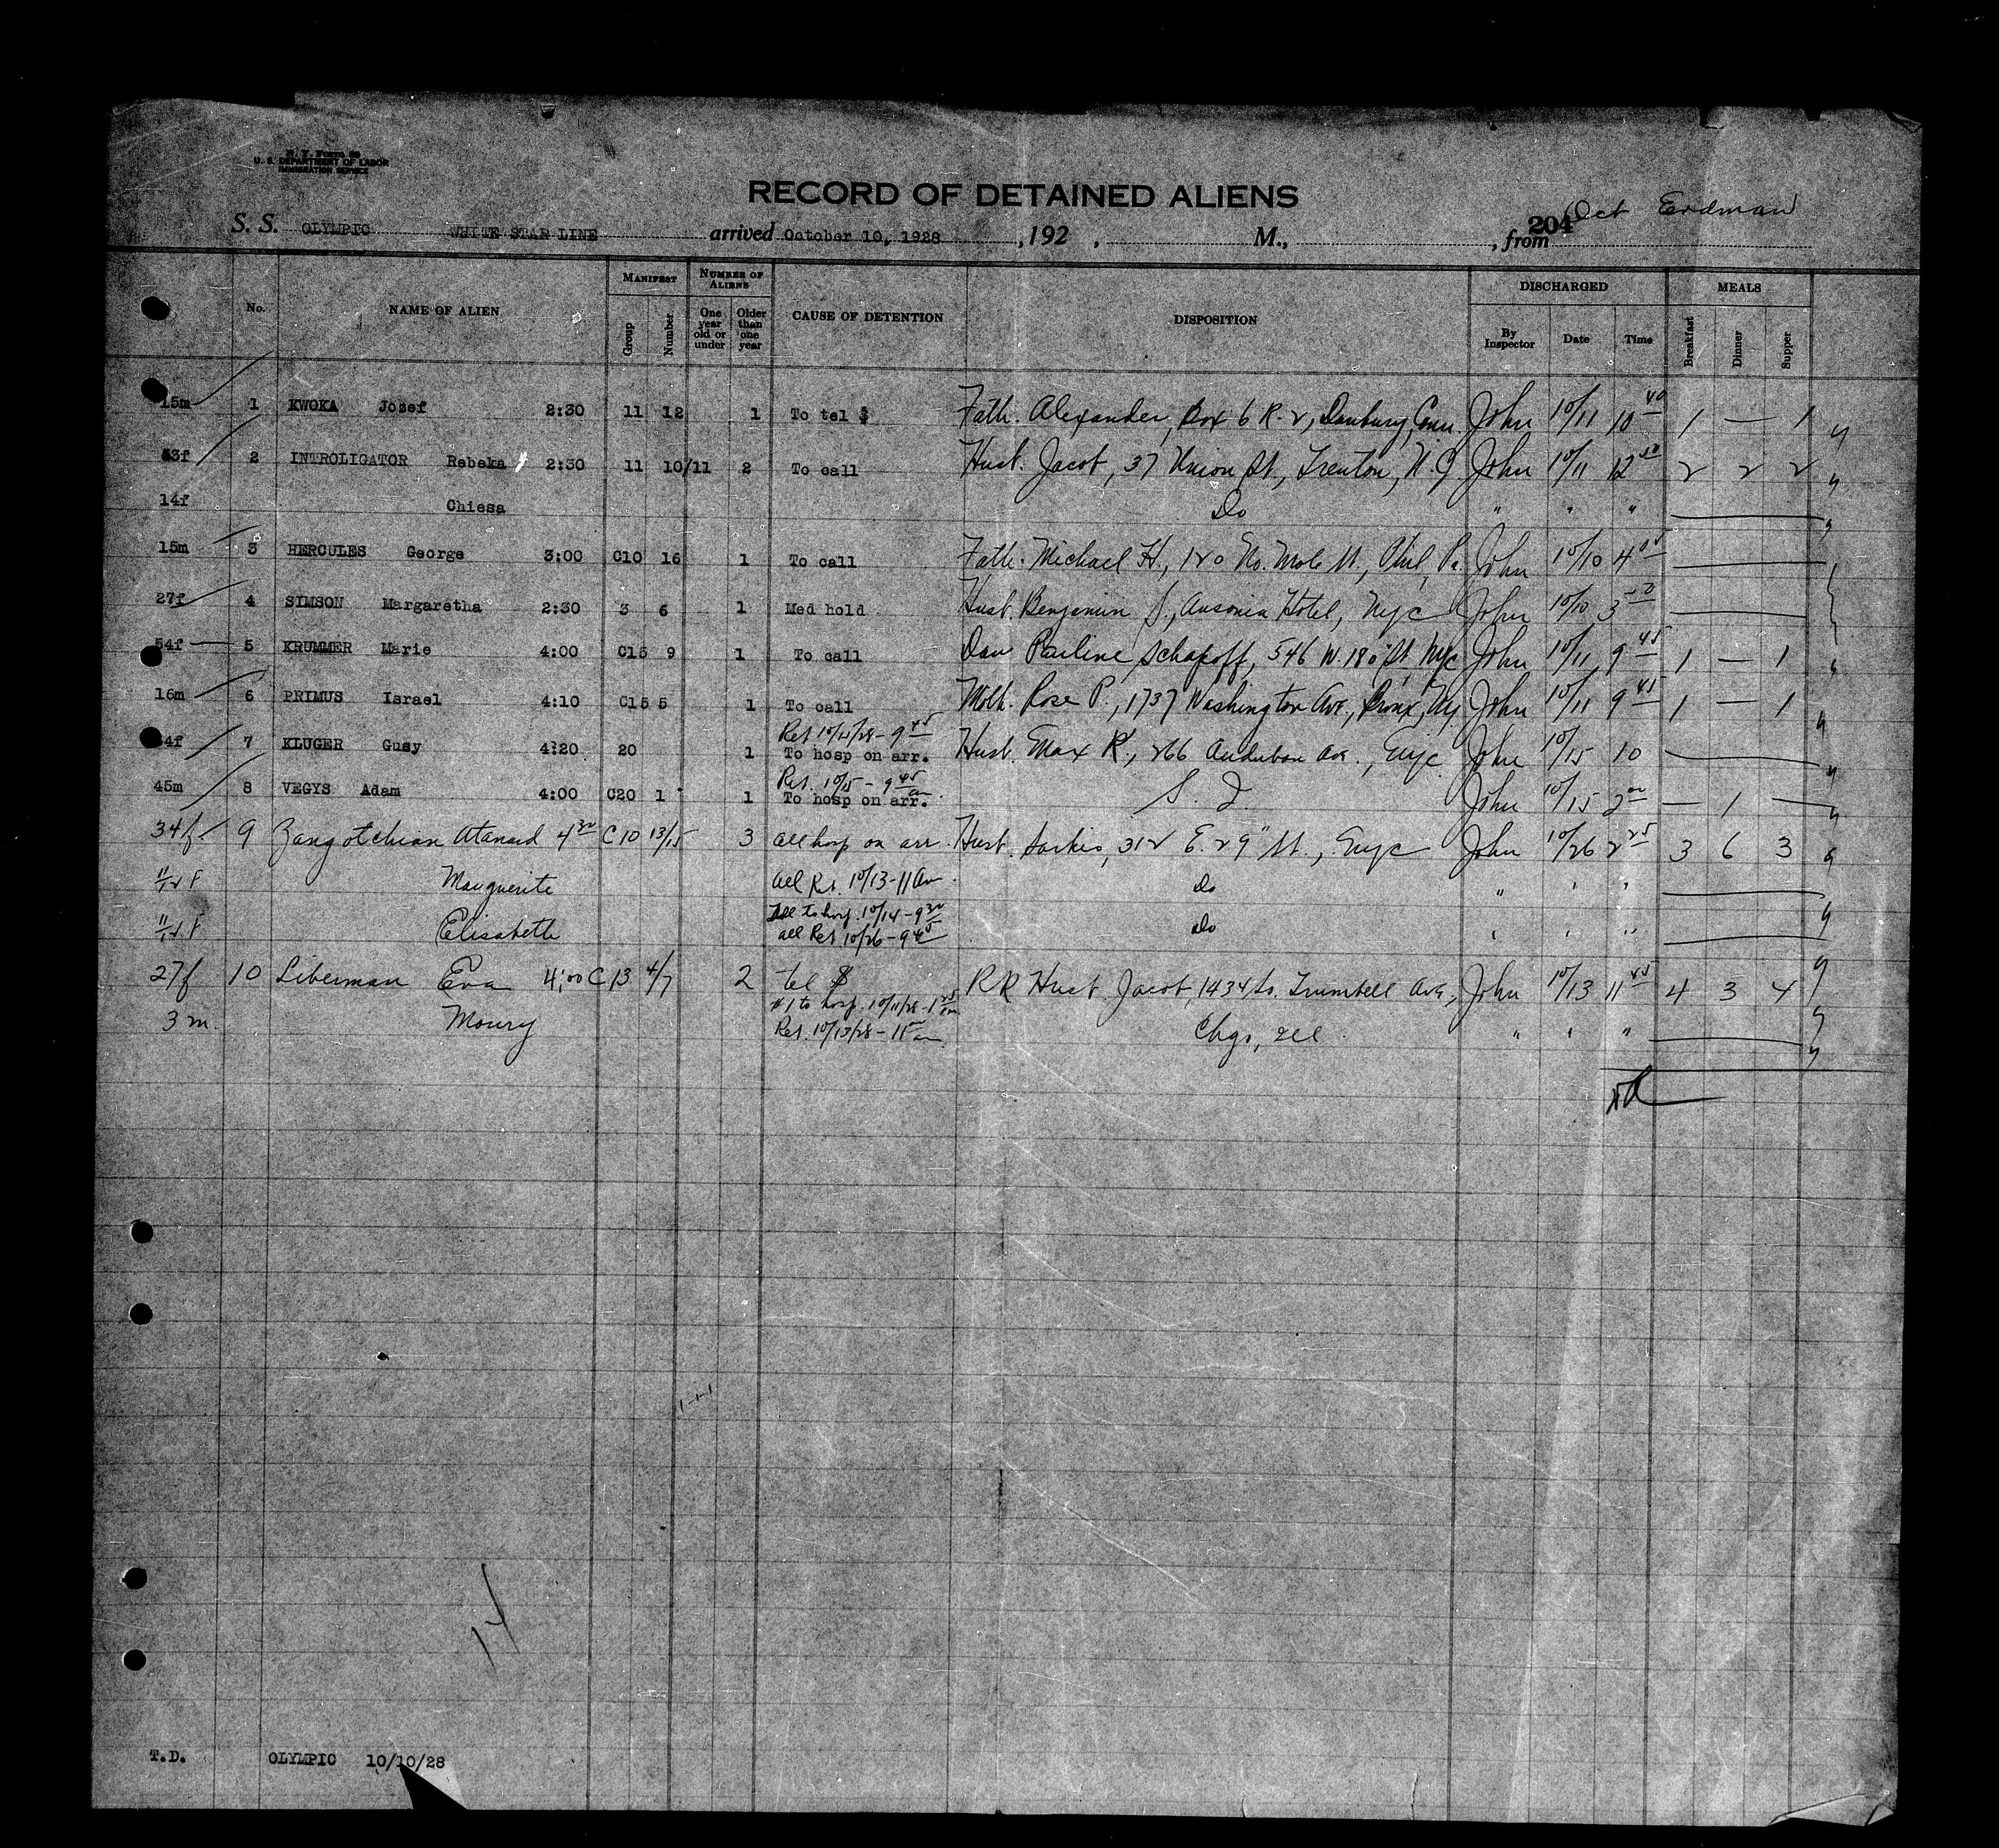 N. Y. Form 99
U. S. DEPARTMENT OF LABOR
IMMIGRATION SERVICE
RECORD OF DETAINED ALIENS
Oct Erdman
S. S. OLYMPIC WHITE STAR LINE arrived October 10, 1928 , 192 , M., , from 204
No. NAME OF ALIEN MANIFEST Group Number NUMBER OF ALIENS One year old or under Older than one year CAUSE OF DETENTION DISPOSITION DISCHARGED By Inspector Date Time MEALS Breakfast Dinner Supper
15m 1 KWOKA Jozef 2:30 11 12 1 To tel $ Fath. Alexander, Box 6 R. 2, Danbury, Conn. John 10/11 10 40 1 — 1
2 INTROLIGATOR Rebeka 2:30 11 10/11 2 To call Husb. Jacob, 37 Union St., Trenton, N.J. John 10/11 12 2 2 2
14f Chiesa Do " " "
15m 3 HERCULES George 3:00 C10 16 1 To call Fath. Michael H., 120 No. St., Phil, Pa. John 10/10 4
27f 4 SIMSON Margaretha 2:30 3 6 1 Med hold Husb. Benjamin S., Ansonia Hotel, Nyc John 10/10 3
54f 5 KRUMMER Marie 4:00 C15 9 1 To call Dau Pauline Schapoff, 546 W. 180 St Nyc John 10/11 9 45 1 — 1
16m 6 PRIMUS Israel 4:10 C15 5 1 To call Moth. Rose P., 1737 Washington Ave., Bronx, Ny John 10/11 9 45 1 — 1
7 KLUGER Gusy 4:20 20 1 To hosp on arr. Husb. Max K., 266 Audubon Ave., Nyc John 10/15 10
Ret 10/15/28 - 9 45
45m 8 VEGYS Adam 4:00 C20 1 1 To hosp on arr. S. I. John 10/15 2 00 — 1 —
Ret. 10/15 - 9 45 am
34f 9 Zangotchian Atanaid 4 30 C10 13/15 3 all hosp on arr. Husb. Sarkis, 312 E. 29" St., Nyc John 10/26 2 25 3 6 3
11/12 F Marguerite all Ret. 10/13 - 11 am Do " " "
11/12 F Elisabeth All to hosp. 10/14 - 9 30 Do " " "
all Ret 10/26 - 9 45
27f 10 Liberman Eva 4:00 C13 4/7 2 tel $ RR Husb Jacob 1434 So. Trumbell Ave, John 10/13 11 45 4 3 4
#1 to hosp. 10/11/28 - 1 25 pm
3 m. Moury Ret. 10/13/28 - 11 am Chgo, Ill " " "
1-1-1
14
T.D. OLYMPIC 10/10/28